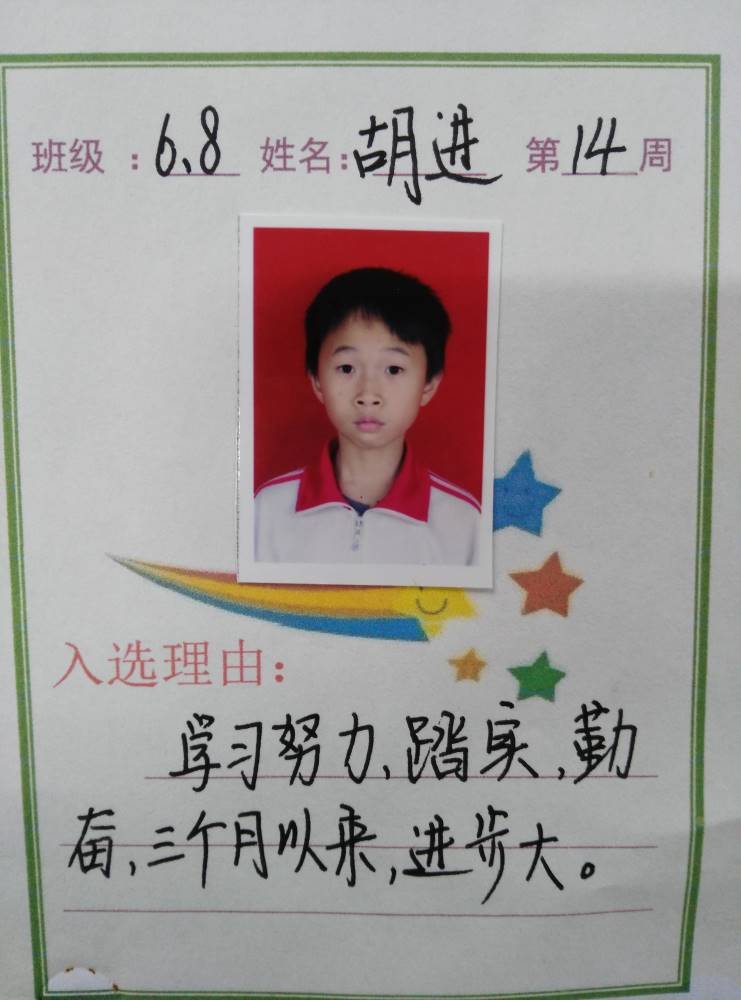 班级：6.8 姓名：胡进 第14周
入选理由：
学习努力，踏实，勤
奋，三个月以来，进步大。